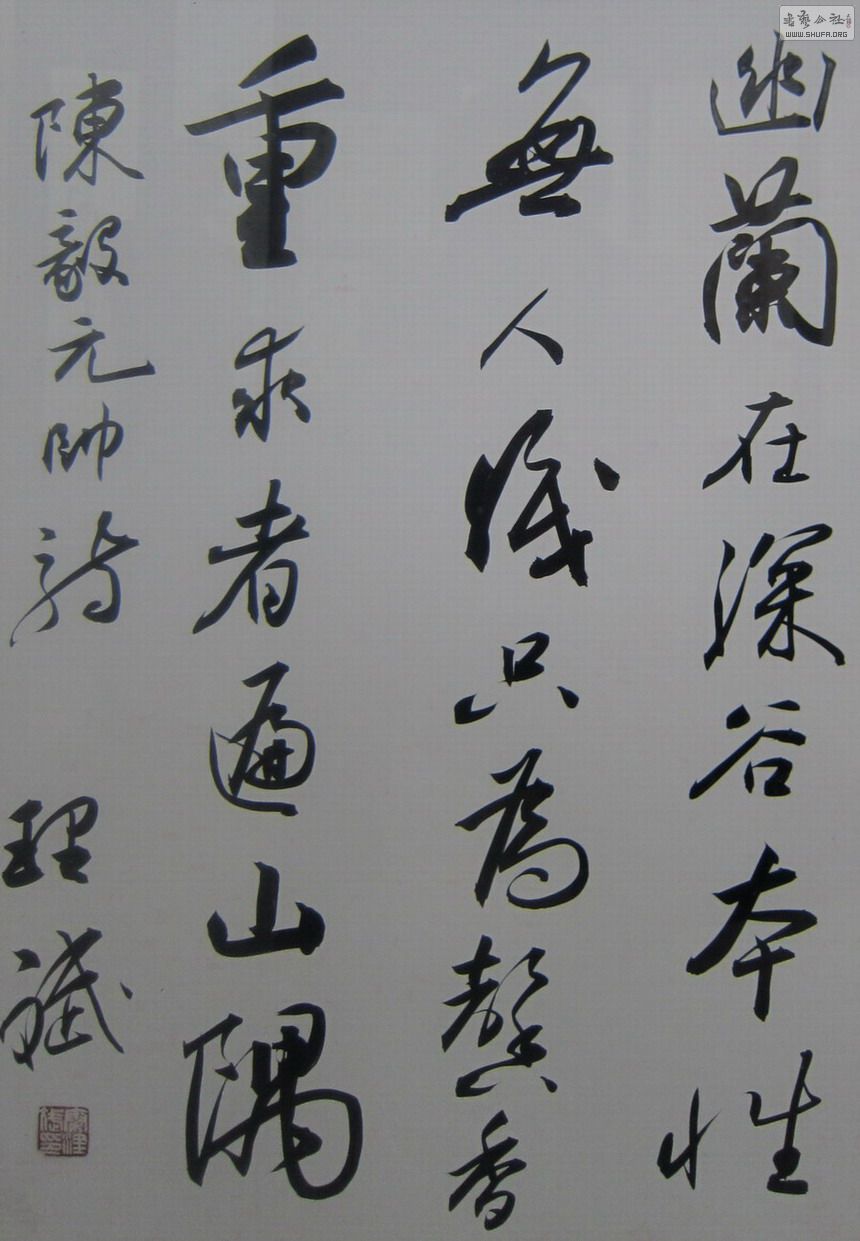 幽蘭在深谷本性
無人識只為馨香
重求者遍山隅
陳毅元帥詩
理斌
WWW.SHUFA.ORG